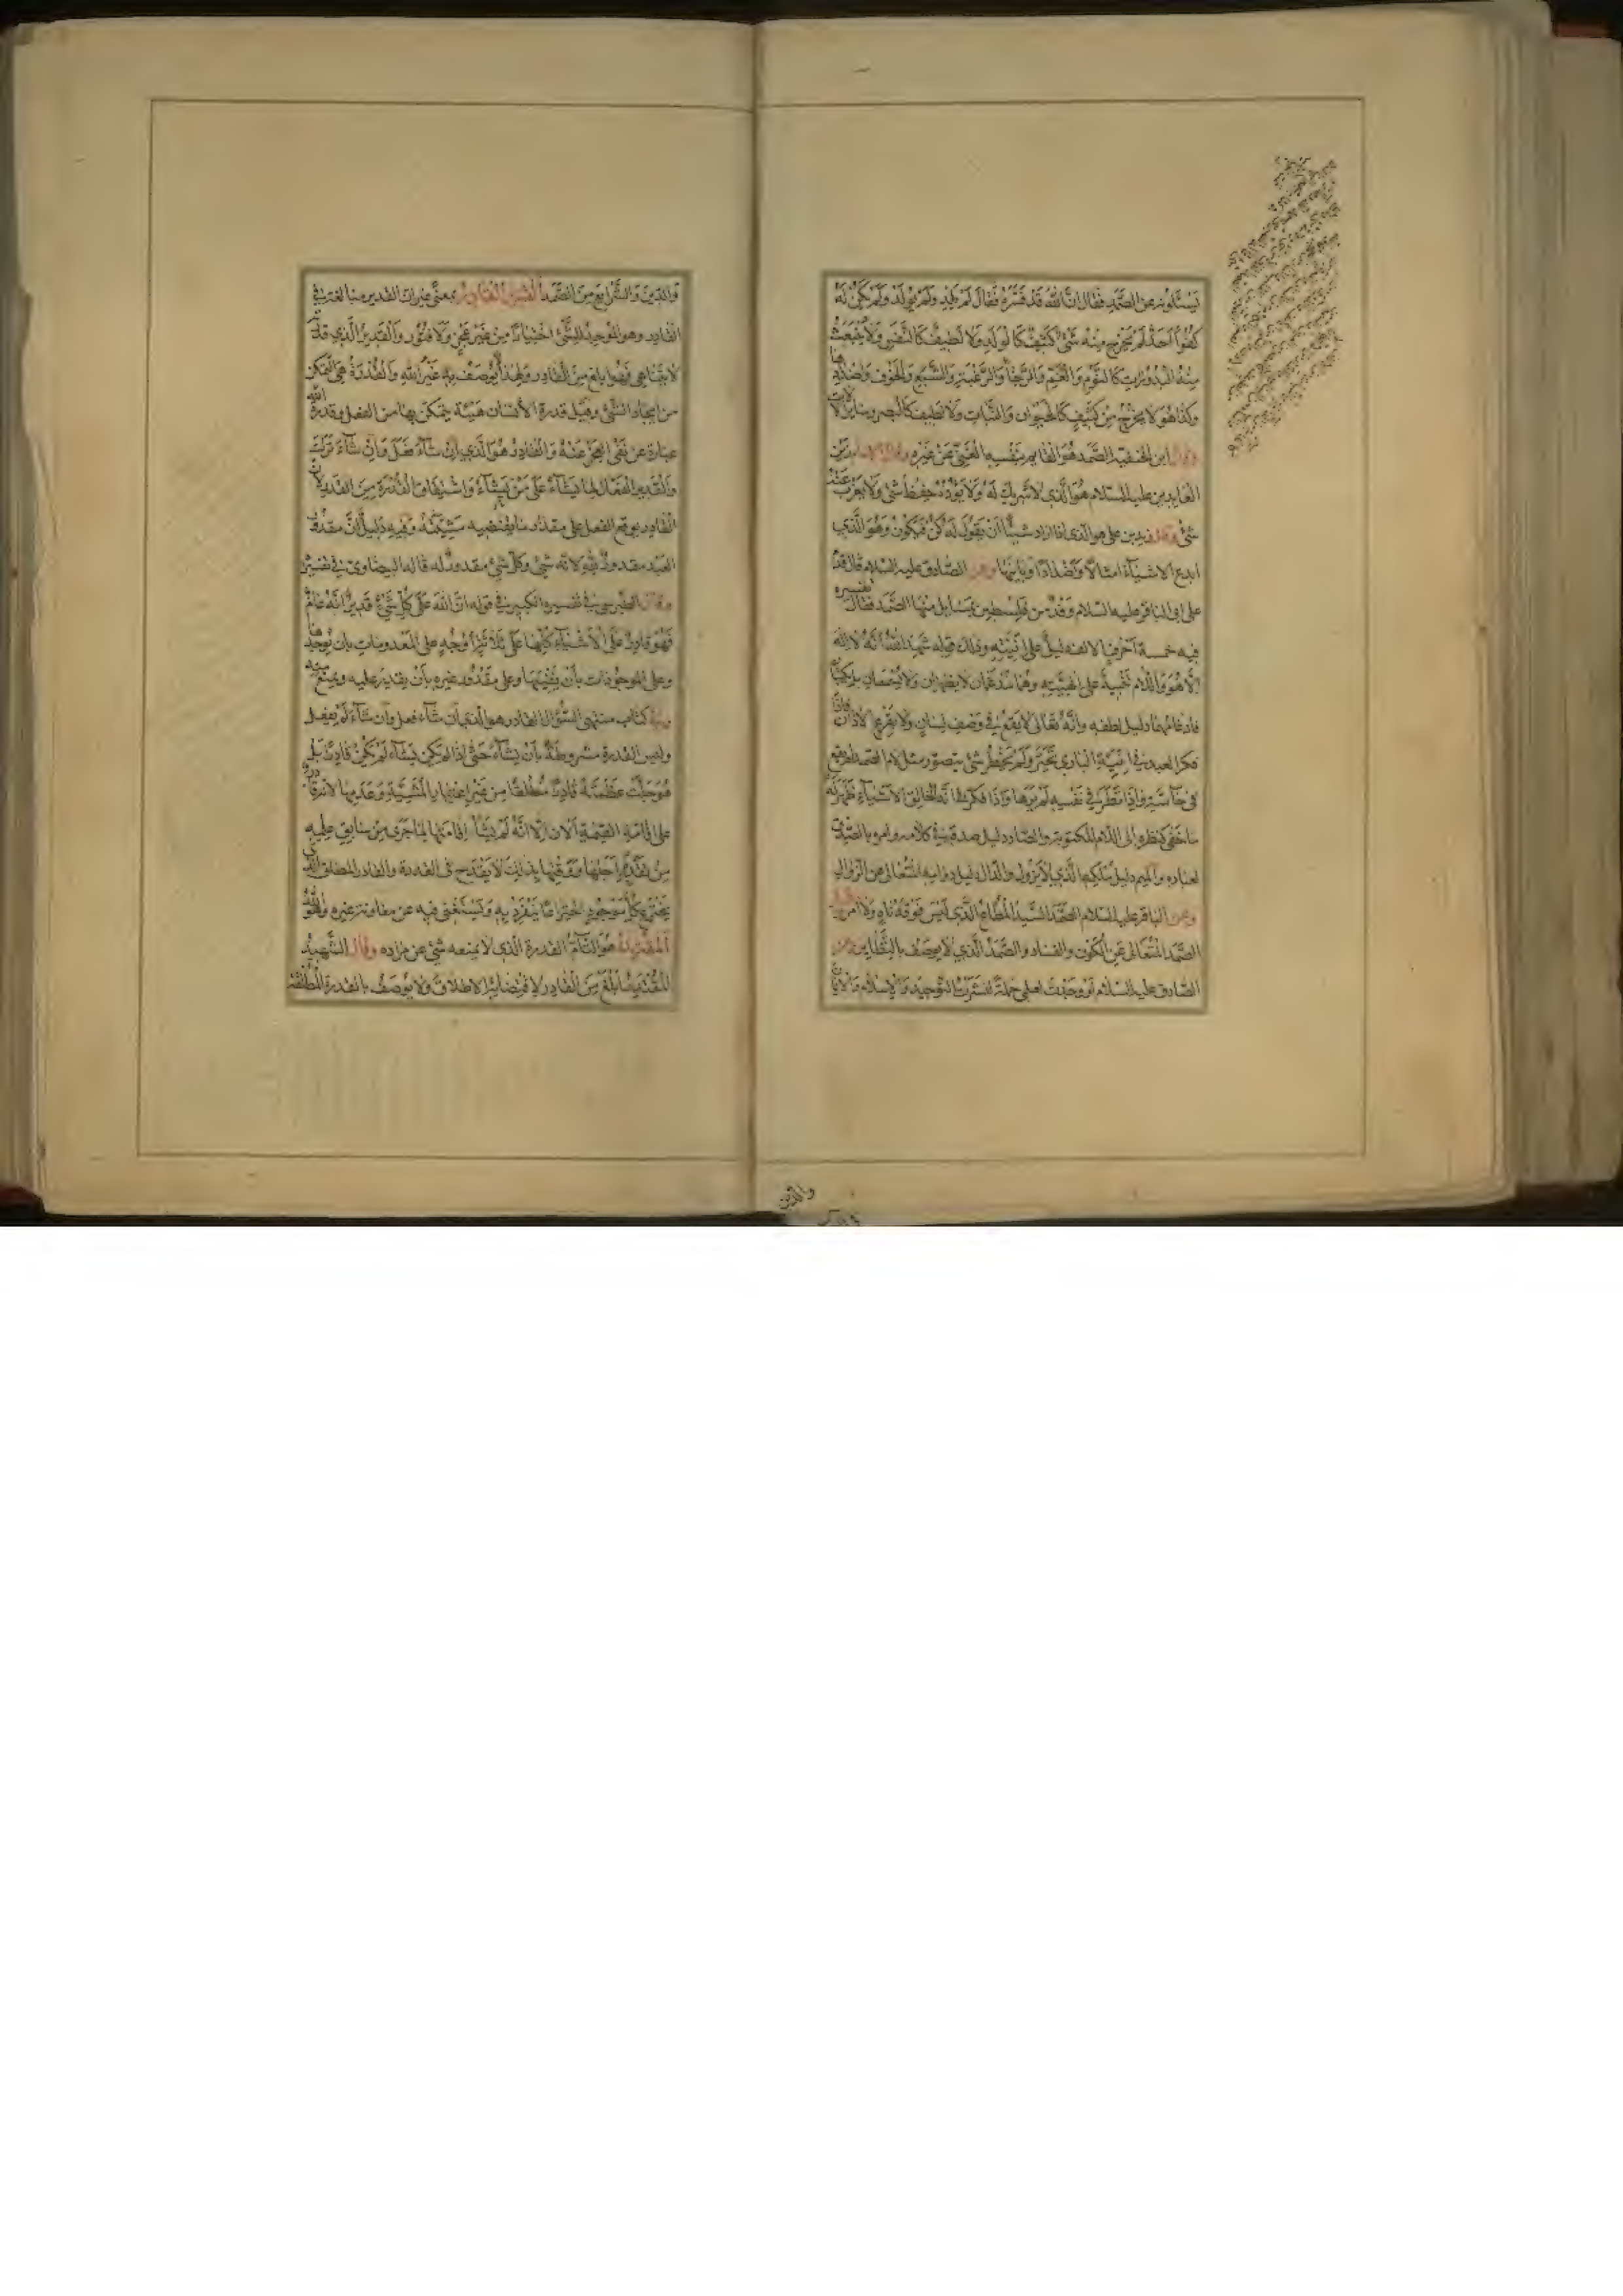 يَسْئَلُونه عن الصَّمَدِ فقال اِنَّ اللهَ قَدْ فَسَّرَهُ فَقَالَ لَمْ يَلِدْ وَلَمْ يُولَدْ وَلَمْ يَكُنْ لَهُ
كُفُوًا اَحَدٌ لَمْ يَخْرُج مِنْهُ شَيْئٌ كَثيفٌ كَالوَلَدِ وَلا لَطيفٌ كَالنَّفَسِ وَلا يَنْبَعِثُ
مِنْهُ البَدَوَاتُ كالنَّوْمِ وَالْغَمِّ وَالرَّجَآءِ وَالرَّغْبَةِ وَالشِّبَعِ وَالْخَوْفِ وَاضدادها
وكذا هُوَ لا يخرُجُ مِنْ كَثيفٍ كالحَيَوانِ وَالنَّباتِ وَلا لَطيفٍ كالبصر وسائر الآلات
وقال ابن الحنفية الصَّمَد هُوَ القايِم بِنَفْسِهِ الْغَنِيُّ عَنْ غَيْرِهِ وقال زين
العابدين عليه السلام هُوَ الَّذي لا شَريكَ لَهُ وَلا يَؤُدُهُ حِفْظُ شَئٍ وَلا يَعْزُبُ عَنْهُ
شَئٌ وقال زيد بن علي هو الذي اذا اراد شيئًا اَنْ يَقُولَ لَهُ كُنْ فَيَكُونُ وَهُوَ الَّذي
ابدع الاشياء امثالا وَاَضْدادًا وبايَنَها وعن الصّادق عليه السّلام قال قدم
على ابي الباقر عليه السّلام وَفْدٌ من فِلِسْطين بمسايل منها الصَّمَد فقال تفسيره
فيه خمسة اَحْرُفٍ الالف دليلٌ على اِنّيَّتِهِ وذلك قوله شَهِدَ اللهُ اَنَّهُ لا اِلهَ
اِلّا هُوَ وَاللّام تَنْبِيهٌ على اِلهيَّتِهِ وَهُما مُدْغَمان لا يظهران وَلا يُسْمَعان بل يكتبان
فادغامهما دليل لطفه وانَّهُ تَعَالى لا يَقَعُ في وَصْفِ لِسانٍ وَلا يَقْرَعُ الآذان فاذا
فكر العبد في اِنّيَّةِ الباري تَحَيَّرَ وَلَمْ يَخْطُر شئ يتصوّر مثل لام الصّمد لم يقع
في حآسّةٍ واِذا نَظَرَ في نَفْسِهِ لَمْ يَرَها واذا فكر في انّه الخالق للاشيآء ظَهَرَ لَهُ
ما خَفِيَ كنظره الى اللّام المكتوبة والصاد دليل صدقه في كلامه وامره بالصِّدق
لعباده وَالميم دليل مُلْكِهِ الَّذي لا يَزُولُ والدّال دليل دوامه المتعالى عن الزّوال
وعن الباقر عليه السّلام الصَّمَد السَّيِّدُ الْمُطاعُ الَّذي لَيْسَ فَوْقَهُ ناهٍ وَلا آمِرٌ وقيل
الصَّمَد المُتَعالى عَنِ الْكَوْنِ والفساد والصَّمَدُ الَّذي لا يوصَف بالنَّظاير وعن
الصّادق عليه السّلام لَوْ وَجَدْتُ لعلمي حَمَلَةً لنَشَرْتُ التَّوْحِيدَ وَالاِسلامَ وَالايمان
والدّين
وَالدّينَ وَالشَّرايعَ مِنَ الصَّمَدِ القدير القادر بمعنًى غير انّ القدير مبالغة في
القادر وهو الموجِدُ للشَّئ اختِيارًا مِنْ غَيْرِ عَجْزٍ وَلا فُتُورٍ وَالْقَديرُ الَّذي قدرته
لا تتناهى فَهُوَ ابلغ مِنَ القادِر وَلِهذا لا يُوصَفُ بِهِ غَيْرُ اللهِ وَالْقُدْرَةُ هِيَ التَّمَكُّن
من ايجاد الشَّئ وقيل قدرة الانسان هَيْئَة يتمكّن بها من الفعل وقدرة الله
عبارة عن نَفْيِ العَجْزِ عَنْهُ وَالقادِرُ هُوَ الَّذي اِنْ شآءَ فَعَلَ وَاِنْ شآءَ تَرَكَ
وَالْقَدير الفَعّال لِما يَشآءُ عَلى مَنْ يَشآءُ وَاشْتِقاقُ القُدْرَة مِنَ القَدر لانّ
القادر يوقع الفعل على مقدار ما يقتضيه مَشِيَّتُهُ وَفيهِ دَليلٌ اَنَّ مقدُور
العَبْد مقدورٌ للهِ لانّه شئ وكلّ شئ مقدورٌ له قاله البيضاوي في تفسيره
وقال الطبرسي في تفسيره الكبير في قوله اِنَّ اللهَ عَلى كُلِّ شَيْءٍ قَديرٌ اِنَّهُ عامٌّ
فَهُوَ قادِرٌ عَلَى الْاَشْيآءِ كُلِّها عَلى ثلاثَةِ اَوْجُهٍ على المَعْدومات بان يُوجِدَها
وعلى الموجُودات بأن يُفْنِيَها وعلى مَقْدُور غيره بِأَنْ يقدِرَ عليه ويمنع منه
وفي كتاب منتهى السُّؤال القادر هو الّذي اِن شآء فعل وَاِن شآءَ لَمْ يفعل
وليس القدرة مشروطةً بأن يشآءَ حَتّى اذا لم يكن يشآء لَمْ يَكُنْ قادِرًا بَلْ
هُوَ جَلَّتْ عَظَمَتُهُ قادِرٌ مُطْلَقًا مِنْ غَيْرِ اعتبار المَشِيَّةِ وَعَدَمِها لانّه قادر
على اقامة القيمة الآن اِلّا انَّهُ لَمْ يَشَأْ اقامَتَها لِما جَرى مِنْ سابِقِ علمِهِ
مِنْ تقديرِ اَجَلِها وَوَقْتِها فذلك لا يَقْدَحُ في القدرة والقادر المطلق الذي
يَخْتَرِعُ كُلَّ مَوْجُودٍ اختِراعًا يَنْفَرِدُ بِهِ وَيَسْتَغْني فيه عن معاونة غيره وَهُوَ اللهُ
اَلْمُقْتَدِرُ هُوَ التّآمُّ القدرة الّذي لا يمنعه شئ عن مراده وقال الشَّهيدُ
المُقْتَدِر اَبْلَغُ مِنَ القادِرِ لاقتضائه الاطلاق وَلا يُوصَفُ بالقدرة المُطْلَقَة